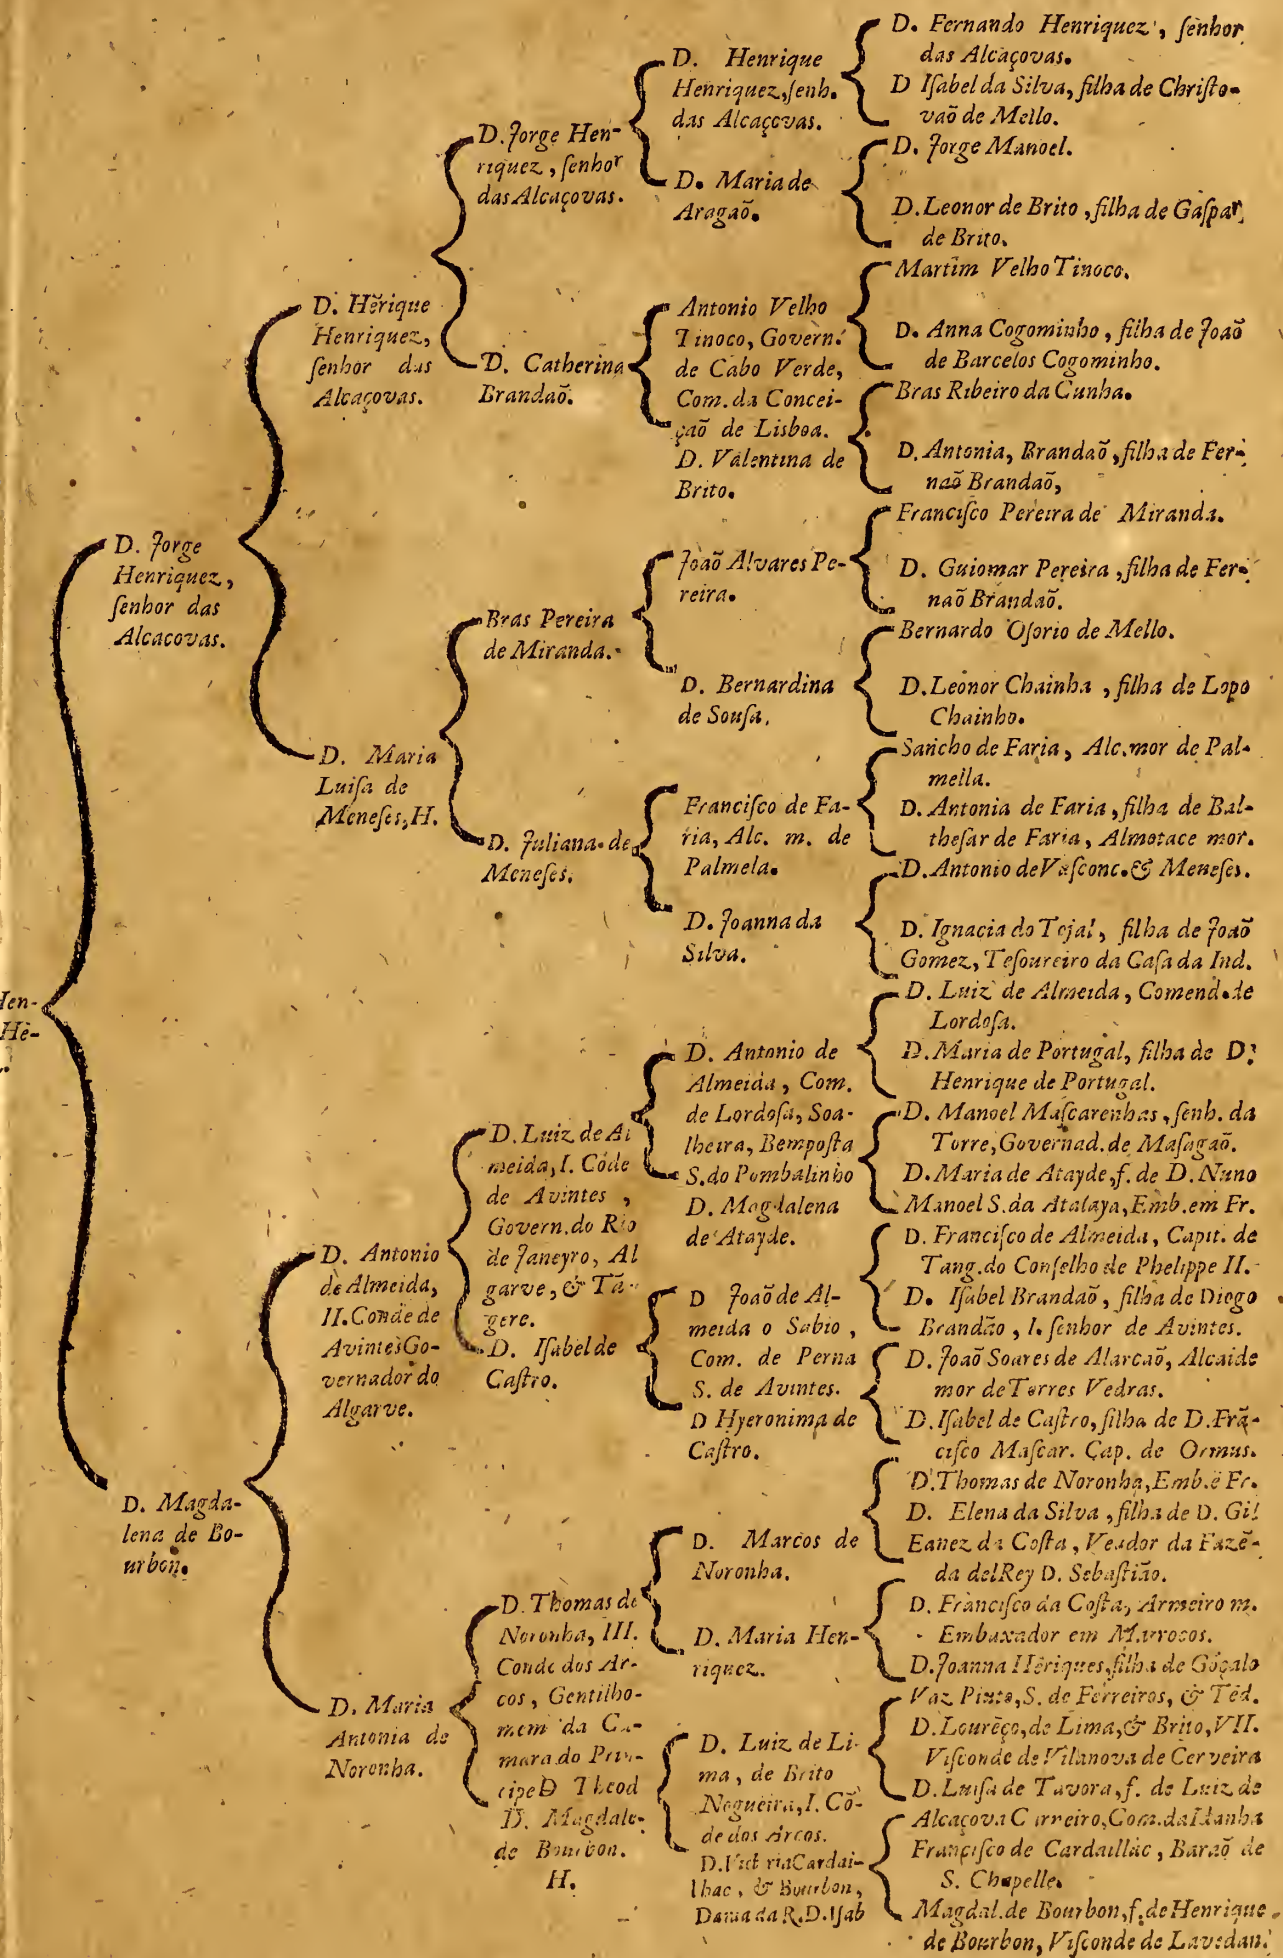 Hen-
Hē-
D. Jorge
Henriquez,
ſenhor das
Alcacovas.
D. Magda-
lena de Bo-
urbon.
D. Hērique
Henriquez,
ſenhor das
Alcaçovas.
D. Maria
Luiſa de
Meneſes, H.
D. Antonio
de Almeida,
II. Conde de
Avintes Go-
vernador do
Algarve.
D. Maria
Antonia de
Noronha.
D. Jorge Hen-
riquez, ſenhor
das Alcaçovas.
D. Catherina
Brandaõ.
Bras Pereira
de Miranda.
D. Juliana de
Meneſes.
D. Luiz de Al
meida, I. Cõde
de Avintes,
Govern. do Rio
de Janeyro, Al
garve, & Tã-
gere.
D. Iſabel de
Caſtro.
D. Thomas de
Noronha, III.
Conde dos Ar-
cos, Gentilho-
mem da Ca-
mara do Prin-
cipe D Theod
D. Magdale-
de Bourbon.
H.
D. Henrique
Henriquez, ſenh.
das Alcaçovas.
D. Maria de
Aragaõ.
Antonio Velho
Tinoco, Govern.
de Cabo Verde,
Com. da Concei-
çaõ de Lisboa.
D. Valentina de
Brito.
Joaõ Alvares Pe-
reira.
D. Bernardina
de Souſa.
Franciſco de Fa-
ria, Alc. m. de
Palmela.
D. Joanna da
Silva.
D. Antonio de
Almeida, Com.
de Lordoſa, Soa-
lheira, Bempoſta
S. do Pombalinho
D. Magdalena
de Atayde.
D Joaõ de Al-
meida o Sabio,
Com. de Perna
S. de Avintes.
D Hyeronima de
Caſtro.
D. Marcos de
Noronha.
D. Maria Hen-
riquez.
D. Luiz de Li-
ma, de Brito
Nogueira, I. Cõ-
de dos Arcos.
D. Victoria Cardai-
lhac, & Bourbon,
Dama da R. D. Iſab
D. Fernando Henriquez, ſenhor
das Alcaçovas.
D Iſabel da Silva, filha de Chriſto-
vaõ de Mello.
D. Jorge Manoel.
D. Leonor de Brito, filha de Gaſpar
de Brito.
Martim Velho Tinoco.
D. Anna Cogominho, filha de Joaõ
de Barcelos Cogominho.
Bras Ribeiro da Cunha.
D. Antonia, Brandaõ, filha de Fer-
naõ Brandaõ,
Franciſco Pereira de Miranda.
D. Guiomar Pereira, filha de Fer-
naõ Brandaõ.
Bernardo Oſorio de Mello.
D. Leonor Chainha, filha de Lopo
Chainho.
Sancho de Faria, Alc. mor de Pal-
mella.
D. Antonia de Faria, filha de Bal-
theſar de Faria, Almotace mor.
D. Antonio de Vaſconc. & Meneſes.
D. Ignacia do Tojal, filha de Joaõ
Gomez, Teſoureiro da Caſa da Ind.
D. Luiz de Almeida, Comend. de
Lordoſa.
D. Maria de Portugal, filha de D.
Henrique de Portugal.
D. Manoel Maſcarenhas, ſenh. da
Torre, Governad. de Maſagaõ.
D. Maria de Atayde, f. de D. Nuno
Manoel S. da Atalaya, Emb. em Fr.
D. Franciſco de Almeida, Capit. de
Tang. do Conſelho de Phelippe II.
D. Iſabel Brandaõ, filha de Diogo
Brandão, I. ſenhor de Avintes.
D. Joaõ Soares de Alarcaõ, Alcaide
mor de Torres Vedras.
D. Iſabel de Caſtro, filha de D. Frã-
ciſco Maſcar. Cap. de Ormus.
D. Thomas de Noronha, Emb. ē Fr.
D. Elena da Silva, filha de D. Gil
Eanez da Coſta, Veador da Fazē-
da delRey D. Sebaſtião.
D. Franciſco da Coſta, Armeiro m.
Embaxador em Marrocos.
D. Joanna Hēriques, filha de Gõçalo
Vaz Pinto, S. de Ferreiros, & Tēd.
D. Lourēço, de Lima, & Brito, VII.
Viſconde de Vilanova de Cerveira
D. Luiſa de Tavora, f. de Luiz de
Alcaçova Carneiro, Com. da Idanha
Franciſco de Cardaillac, Baraõ de
S. Chapelle.
Magdal. de Bourbon, f. de Henrique
de Bourbon, Viſconde de Lavedan.